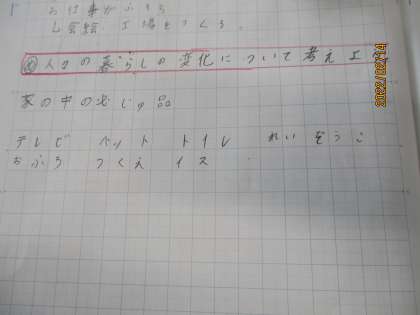 お仕事がふえる
会社、工場をつくる。
め 人々の暮らしの変化について考えよう
家の中の必じゅ品
テレビ ベット トイレ れいぞうこ
おふろ つくえ イス
2022/02/14